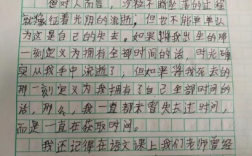 但对人而言，沙粒不断坠落的过程
就象征着光阴的流逝。但也不能单单认
为这是自己的失去。如果将我出生的那
一刻定义为拥有全部时间的话，时光确
实从我手中流逝了，但如果将我死去的
那一刻定义为我拥有自己全部时间的
话，那么，我一直都未曾失去过时间，
而是一直在获取时间。
我还记得在语文课上我们老师曾经